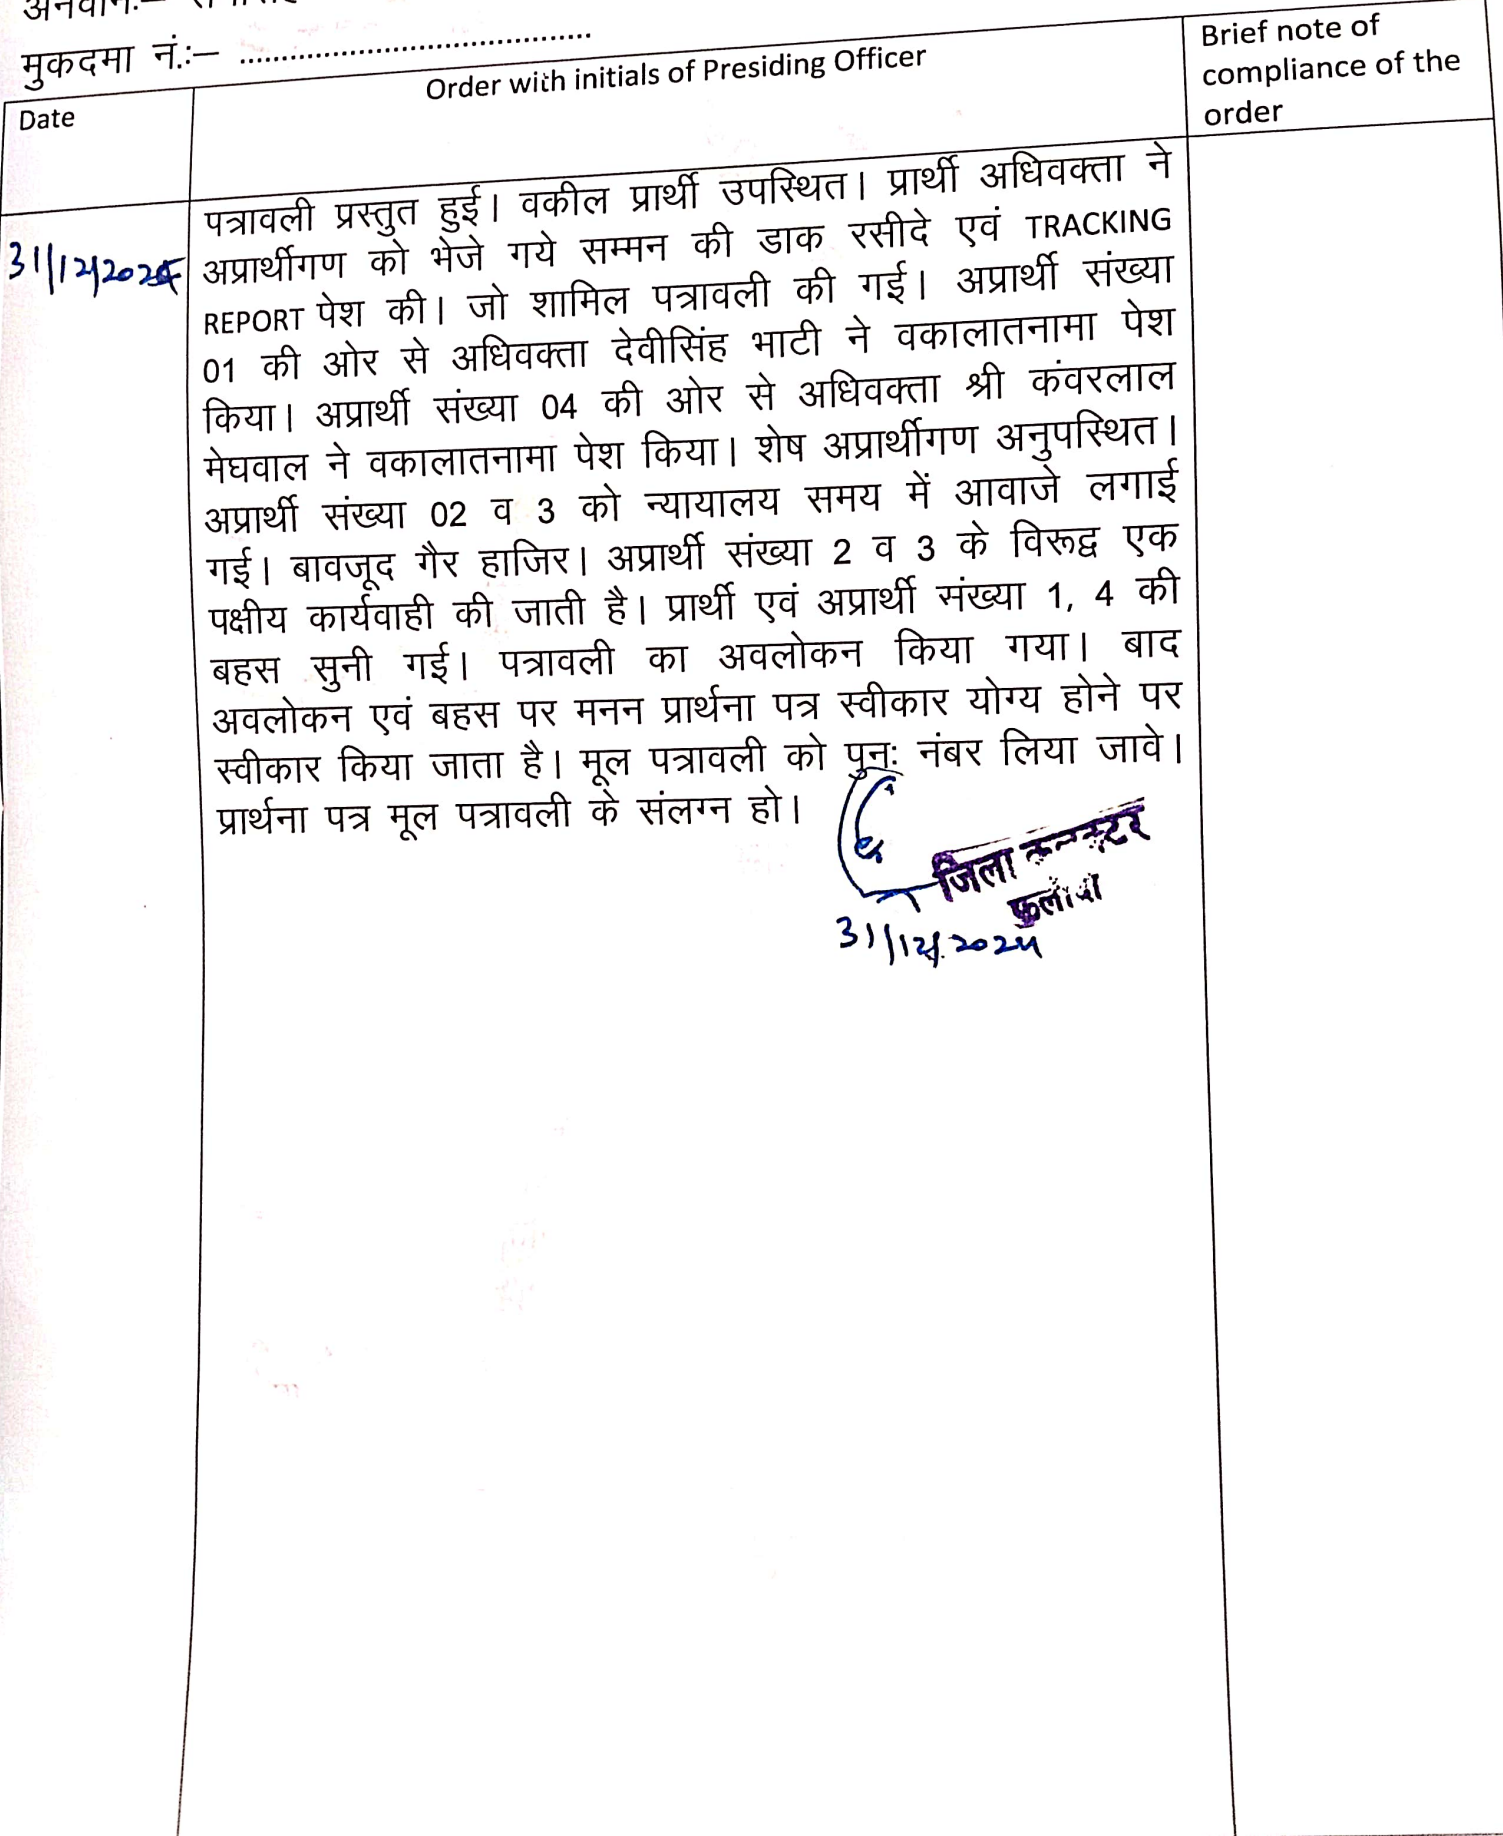 अनवान:–
मुकदमा नं.:– ..........................................
Date
Order with initials of Presiding Officer
Brief note of
compliance of the
order
31/12/2025
पत्रावली प्रस्तुत हुई। वकील प्रार्थी उपस्थित। प्रार्थी अधिवक्ता ने
अप्रार्थीगण को भेजे गये सम्मन की डाक रसीदे एवं TRACKING
REPORT पेश की। जो शामिल पत्रावली की गई। अप्रार्थी संख्या
01 की ओर से अधिवक्ता देवीसिंह भाटी ने वकालातनामा पेश
किया। अप्रार्थी संख्या 04 की ओर से अधिवक्ता श्री कंवरलाल
मेघवाल ने वकालातनामा पेश किया। शेष अप्रार्थीगण अनुपस्थित।
अप्रार्थी संख्या 02 व 3 को न्यायालय समय में आवाजे लगाई
गई। बावजूद गैर हाजिर। अप्रार्थी संख्या 2 व 3 के विरूद्व एक
पक्षीय कार्यवाही की जाती है। प्रार्थी एवं अप्रार्थी संख्या 1, 4 की
बहस सुनी गई। पत्रावली का अवलोकन किया गया। बाद
अवलोकन एवं बहस पर मनन प्रार्थना पत्र स्वीकार योग्य होने पर
स्वीकार किया जाता है। मूल पत्रावली को पुनः नंबर लिया जावे।
प्रार्थना पत्र मूल पत्रावली के संलग्न हो।
जिला कलक्टर
फलोदी
31/12/2025